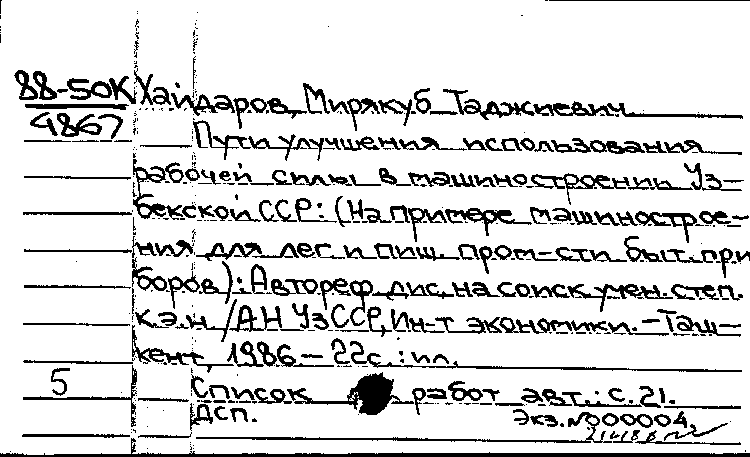 88-50К Хайдаров, Мирякуб Таджиевич
4867
Пути улучшения использования
рабочей силы в машиностроении Уз-
бекской ССР: (На примере машинострое-
ния для лег. и пищ. пром-сти быт. при
боров): Автореф. дис. на соиск. учен. степ.
к.э.н. /АН УзССР, Ин-т экономики. - Таш-
кент, 1986. - 22с. : ил.
5 Список работ авт.: с. 21.
ДСП. Экз. №000004.